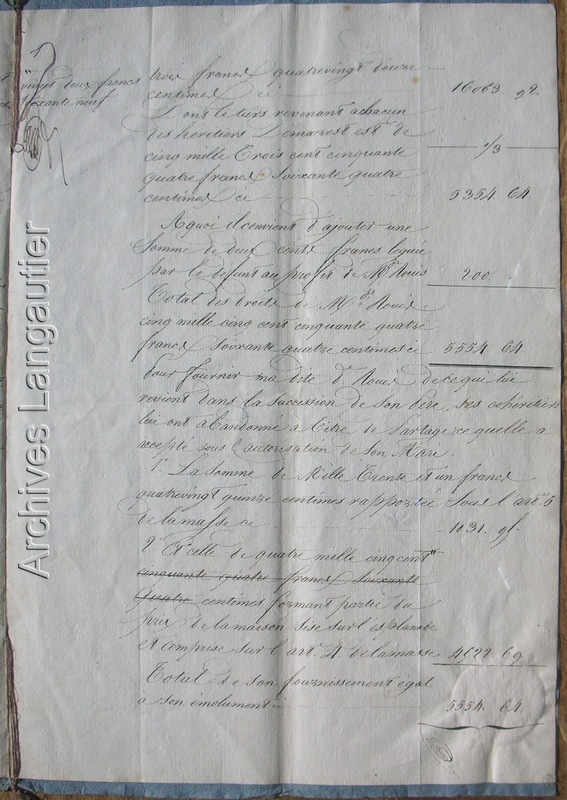 vingt deux francs
soixante neuf
trois francs quatrevingt douze
centimes ci 16063. 92.
Dont le tiers revenant a chacun
des heritiers Demarest est de 1/3
cinq mille trois cent cinquante
quatre francs soixante quatre
centimes ci 5354 64
A quoi il convient d'ajouter une
somme de deux cents francs leguée
par le defunt au profit de Me Rouis 200
Total des droits de Me Rouis
cinq mille cinq cent cinquante quatre
francs soixante quatre centimes ci 5554 64
Pour fournir madite De Rouis de ce qui lui
revient dans la succession de son Père, ses cohéritiers
lui ont abandonné à titre de Partage, ce quelle a
accepté sous l'autorisation de son Mare.
1° La somme de Mille Trente et un francs
quatrevingt quinze centimes rapportée sous l'art. 5
de la masse ci 1031. 95.
2° Et celle de quatre mille cinq cent
cinquante quatre francs soixante
quatre centimes formant partie du
prix de la maison sise sur l'esplanade
et comprise sur l'art. 4 de la masse 4522 69
Total de son fournissement égal
a son émolument 5554. 64
Archives Langautier